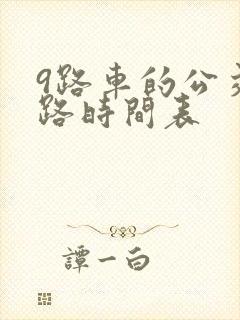 9路車的公交
路時間表
譚一白